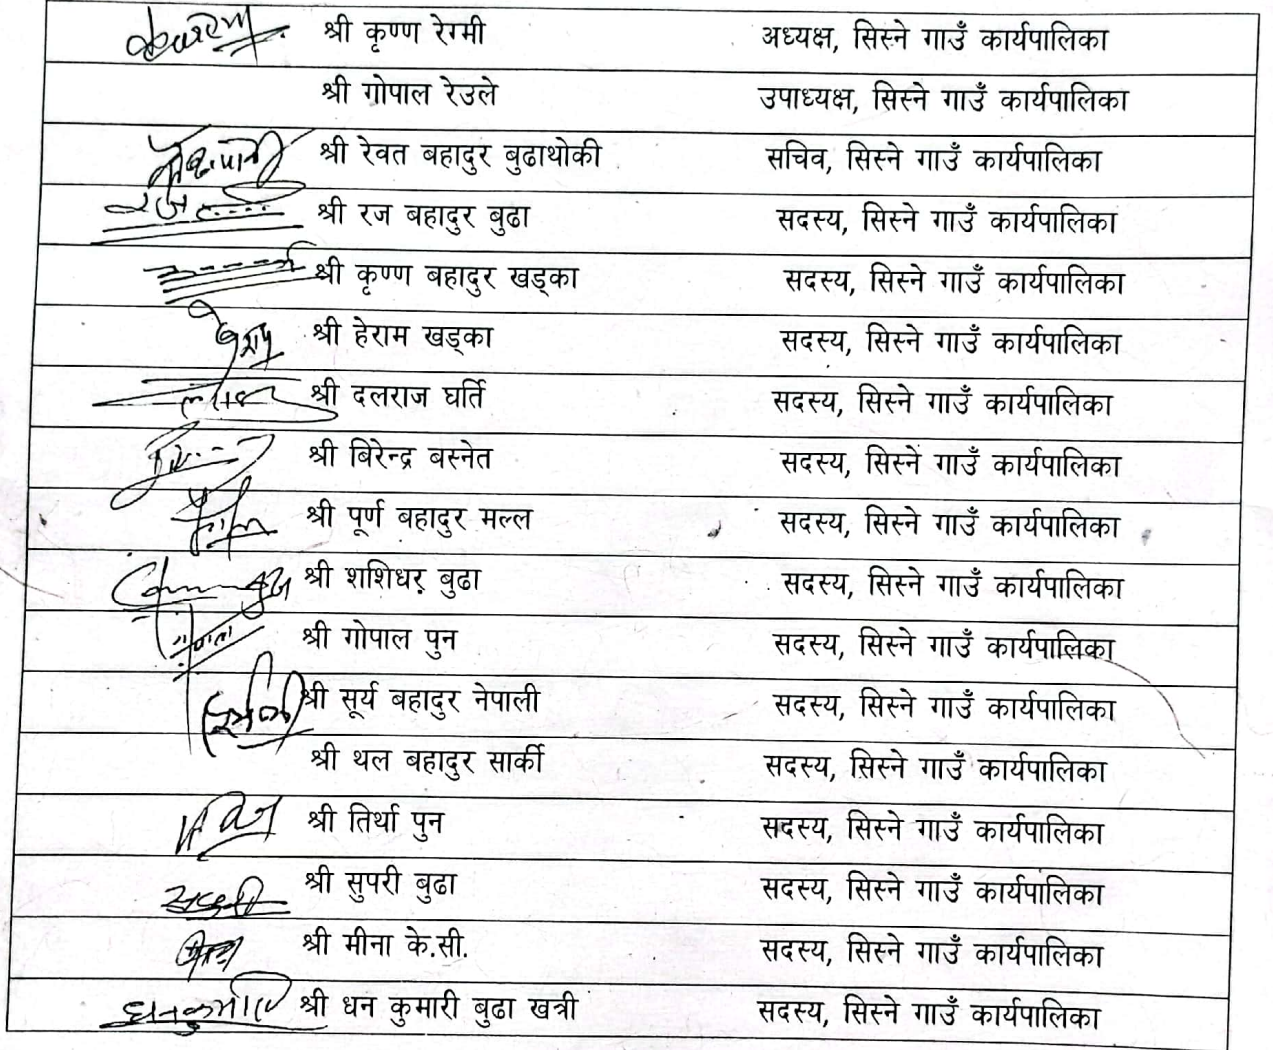 श्री कृष्ण रेग्मी अध्यक्ष, सिस्ने गाउँ कार्यपालिका
श्री गोपाल रेउले उपाध्यक्ष, सिस्ने गाउँ कार्यपालिका
श्री रेवत बहादुर बुढाथोकी सचिव, सिस्ने गाउँ कार्यपालिका
रज श्री रज बहादुर बुढा सदस्य, सिस्ने गाउँ कार्यपालिका
श्री कृष्ण बहादुर खड्का सदस्य, सिस्ने गाउँ कार्यपालिका
श्री हेराम खड्का सदस्य, सिस्ने गाउँ कार्यपालिका
श्री दलराज घर्ति सदस्य, सिस्ने गाउँ कार्यपालिका
श्री बिरेन्द्र बस्नेत सदस्य, सिस्ने गाउँ कार्यपालिका
श्री पूर्ण बहादुर मल्ल सदस्य, सिस्ने गाउँ कार्यपालिका
श्री शशिधर बुढा सदस्य, सिस्ने गाउँ कार्यपालिका
श्री गोपाल पुन सदस्य, सिस्ने गाउँ कार्यपालिका
श्री सूर्य बहादुर नेपाली सदस्य, सिस्ने गाउँ कार्यपालिका
श्री थल बहादुर सार्की सदस्य, सिस्ने गाउँ कार्यपालिका
श्री तिर्था पुन सदस्य, सिस्ने गाउँ कार्यपालिका
श्री सुपरी बुढा सदस्य, सिस्ने गाउँ कार्यपालिका
श्री मीना के.सी. सदस्य, सिस्ने गाउँ कार्यपालिका
धनकुमारी श्री धन कुमारी बुढा खत्री सदस्य, सिस्ने गाउँ कार्यपालिका